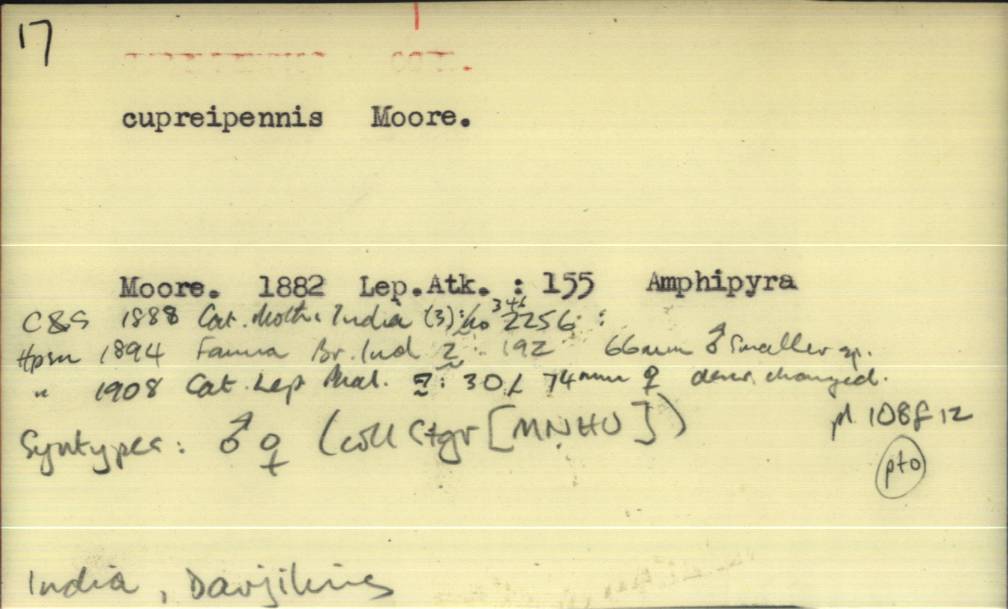 17
cupreipennis Moore.
Moore. 1882 Lep.Atk. : 155 Amphipyra
C&S 1888 Cat. Moths India (3): no 2256 :
346
Hpsn 1894 Fauna Br. Ind 2 : 192 66mm ♂ smaller sp.
" 1908 Cat. Lep Phal. 7: 30 74mm ♀ descr. changed.
pl 108f12
Syntypes: ♂ ♀ (coll Stgr [MNHU])
pto
India, Darjiling